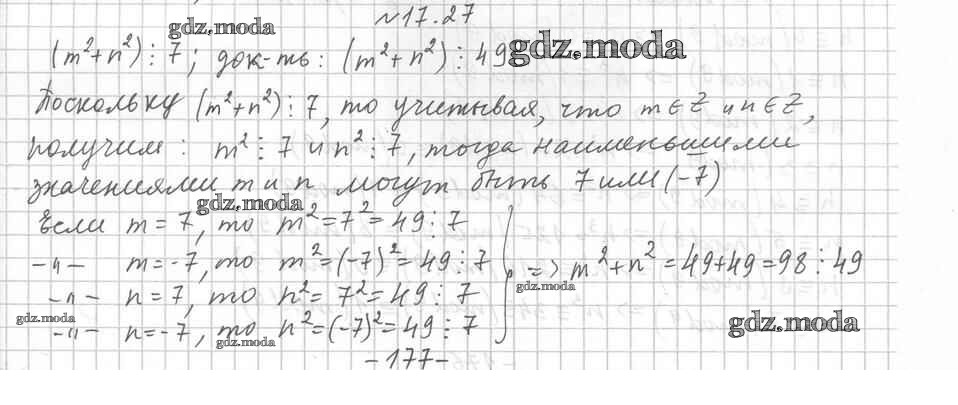 №17.27
gdz.moda
(m²+n²)⋮7; док-ть: (m²+n²)⋮49
gdz.moda
Поскольку (m²+n²)⋮7, то учитывая, что m∈Z и n∈Z,
получим: m²⋮7 и n²⋮7, тогда наименьшими
значениями m и n могут быть 7 или (-7)
gdz.moda
Если m=7, то m²=7²=49⋮7
-"- m=-7, то m²=(-7)²=49⋮7
-"- n=7, то n²=7²=49⋮7
-"- n=-7, то n²=(-7)²=49⋮7
=> m²+n²=49+49=98⋮49
gdz.moda
gdz.moda
gdz.moda
gdz.moda
-177-